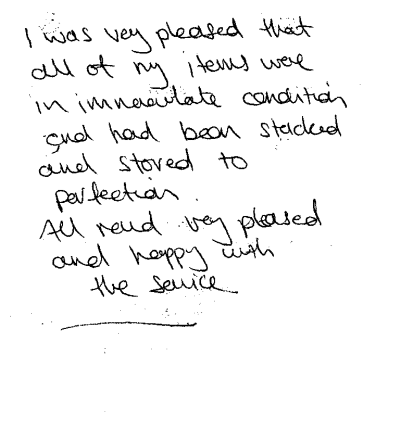 I was very pleased that
all of my items were
in immaculate condition
and had been stacked
and stored to
perfection.
All round very pleased
and happy with
the service